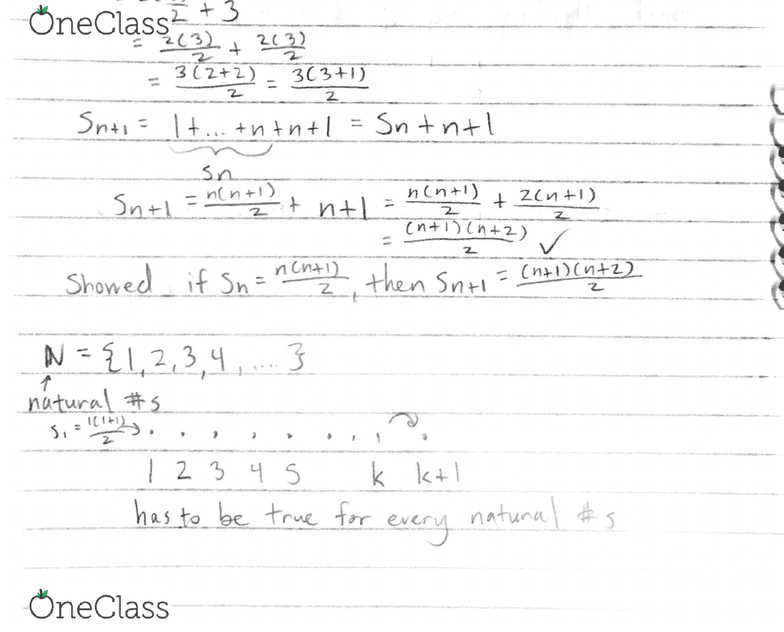 OneClass
2 + 3
= 2(3)/2 + 2(3)/2
= 3(2+2)/2 = 3(3+1)/2
Sn+1 = 1+... +n+n+1 = Sn+n+1
Sn
Sn+1 = n(n+1)/2 + n+1 = n(n+1)/2 + 2(n+1)/2
= (n+1)(n+2)/2 ✓
Showed if Sn = n(n+1)/2, then Sn+1 = (n+1)(n+2)/2
N = {1, 2, 3, 4, .... }
↑
natural #s
S1 = 1(1+1)/2 → . . , , . . . , .
1 2 3 4 5 k k+1
has to be true for every natural #s
OneClass